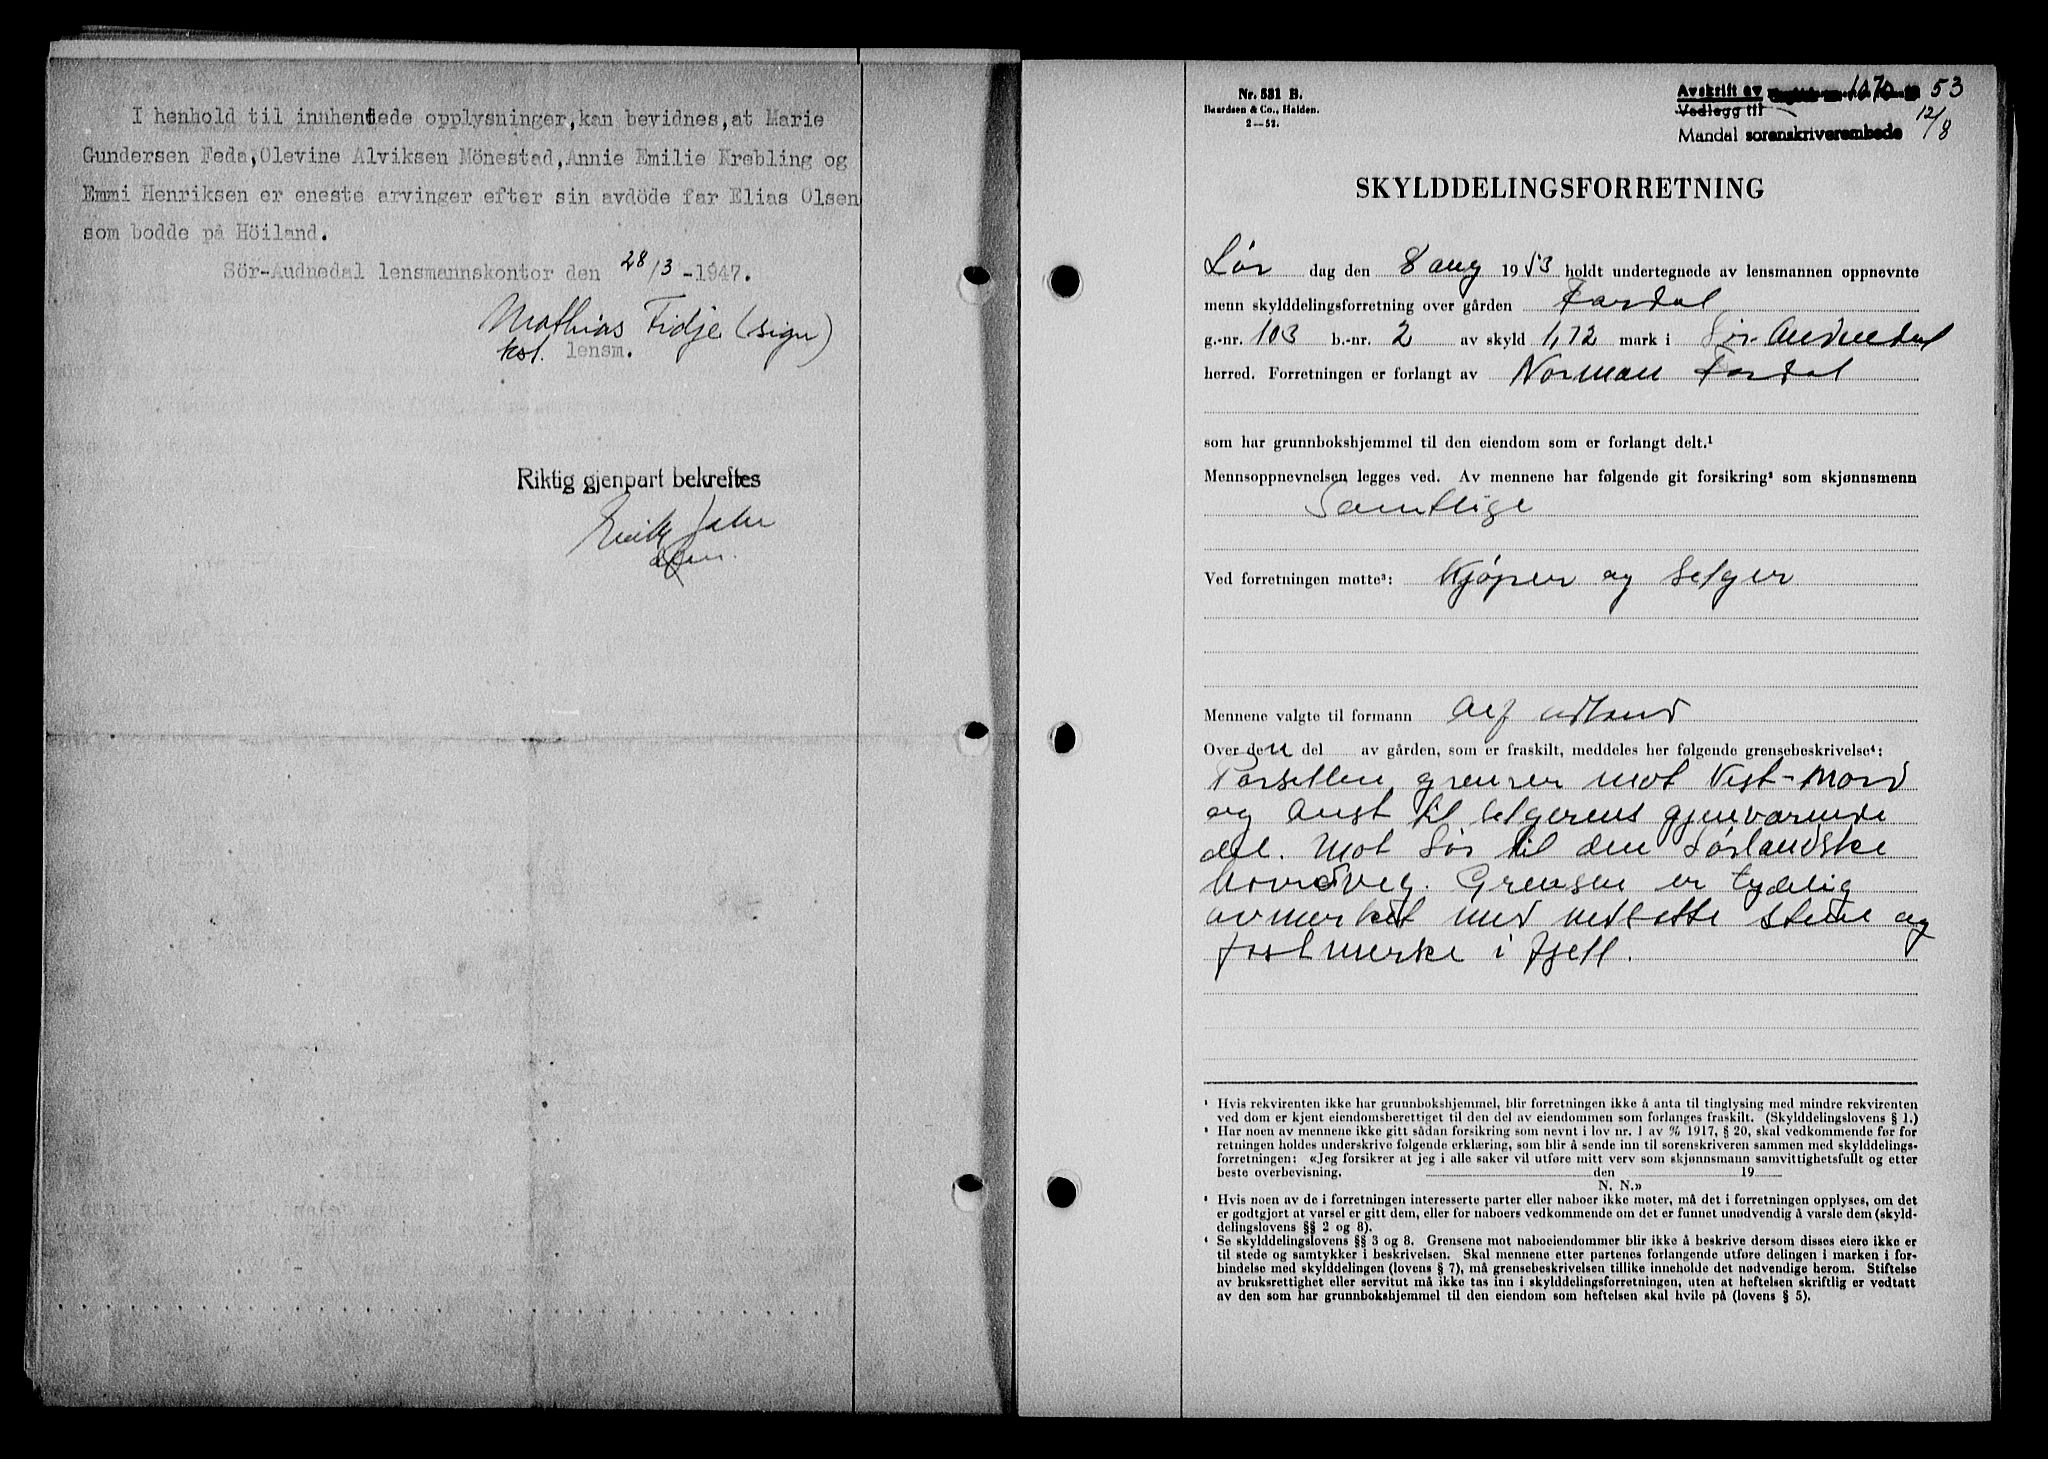 I henhold til innhentede opplysninger, kan bevidnes, at Marie
Gundersen Feda, Olevine Alviksen Mönestad, Annie Emilie Krebling og
Emmi Henriksen er eneste arvinger efter sin avdöde far Elias Olsen
som bodde på Höiland.
Sör-Audnedal lensmannskontor den 28/3-1947.
Mathias Fidje (sign)
kst. lensm.
Riktig gjenpart bekreftes
Nr. 531 B.
Baardsen & Co., Halden.
2—52.
Avskrift av 1070 53
Vedlegg til 12/8
Mandal sorenskriverembede
SKYLDDELINGSFORRETNING
Lør dag den 8 aug 1953 holdt undertegnede av lensmannen oppnevnte
menn skylddelingsforretning over gården Fardal
g.-nr. 103 b.-nr. 2 av skyld 1,72 mark i Sør-Audnedal
herred. Forretningen er forlangt av Norman Fardal
som har grunnbokshjemmel til den eiendom som er forlangt delt.¹
Mennsoppnevnelsen legges ved. Av mennene har følgende git forsikring² som skjønnsmenn
Samtlige
Ved forretningen møtte³: Kjøper og selger
Mennene valgte til formann Alf Udland
Over den del av gården, som er fraskilt, meddeles her følgende grensebeskrivelse⁴:
Parsellen grenser mot Vest-Nord
og Aust til selgerens gjenværende
del. Mot Sør til den Sørlandske
hovedveg. Grensen er tydelig
avmerket med nedsette steine og
fastmerke i fjell.
¹ Hvis rekvirenten ikke har grunnbokshjemmel, blir forretningen ikke å anta til tinglysing med mindre rekvirenten
ved dom er kjent eiendomsberettiget til den del av eiendommen som forlanges fraskilt. (Skylddelingslovens § 1.)
² Har noen av mennene ikke gitt sådan forsikring som nevnt i lov nr. 1 av 1917, § 20, skal vedkommende før for
retningen holdes underskrive følgende erklæring, som blir å sende inn til sorenskriveren sammen med skylddelings-
forretningen: «Jeg forsikrer at jeg i alle saker vil utføre mitt verv som skjønnsmann samvittighetsfullt og etter
beste overbevisning. den 19
N. N.»
³ Hvis noen av de i forretningen interesserte parter eller naboer ikke møter, må det i forretningen opplyses, om det
er godtgjort at varsel er gitt dem, eller for naboers vedkommende om det er funnet unødvendig å varsle dem (skyld-
delingslovens §§ 2 og 8).
⁴ Se skylddelingslovens §§ 3 og 8. Grensene mot naboeiendommer blir ikke å beskrive dersom disses eiere ikke er
til stede og samtykker i beskrivelsen. Skal mennene etter partenes forlangende utføre delingen i marken i for-
bindelse med skylddelingen (lovens § 7), må grensebeskrivelsen tillike inneholde det nødvendige herom. Stiftelse
av bruksrettighet eller servitut må ikke tas inn i skylddelingsforretningen, uten at heftelsen skriftlig er vedtatt
av den som har grunnbokshjemmel til den eiendom som heftelsen skal hvile på (lovens § 5).